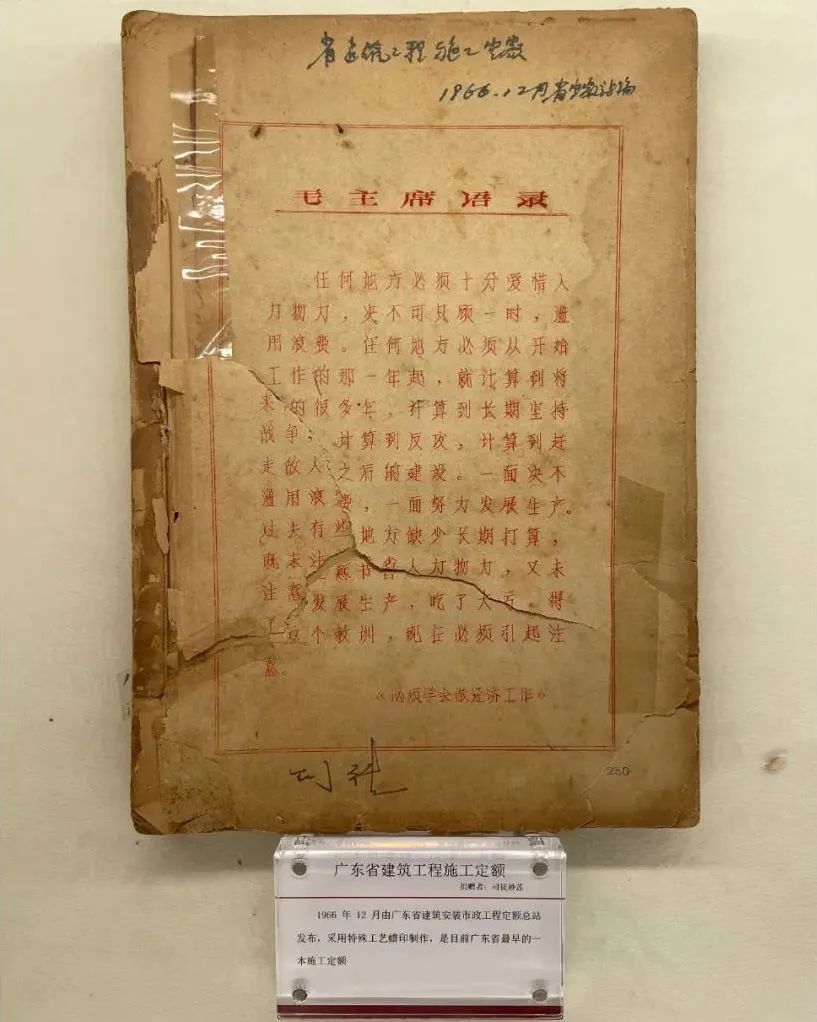 省建筑工程施工定额
1966.12月省定额站编
毛主席语录
任何地方必须十分爱惜人
力物力，决不可只顾一时，滥
用浪费。任何地方必须从开始
工作的那一年起，就计算到将
来的很多年，计算到长期坚持
战争，计算到反攻，计算到赶
走敌人之后的建设。一面决不
滥用浪费，一面努力发展生产。
过去有些地方缺少长期打算，
既未注意节省人力物力，又未
注意发展生产，吃了大亏。得
了这个教训，现在必须引起注
意。
《必须学会做经济工作》
230
广东省建筑工程施工定额
捐赠者：司徒妙莲
1966 年 12 月由广东省建筑安装市政工程定额总站
发布，采用特殊工艺蜡印制作，是目前广东省最早的一
本施工定额